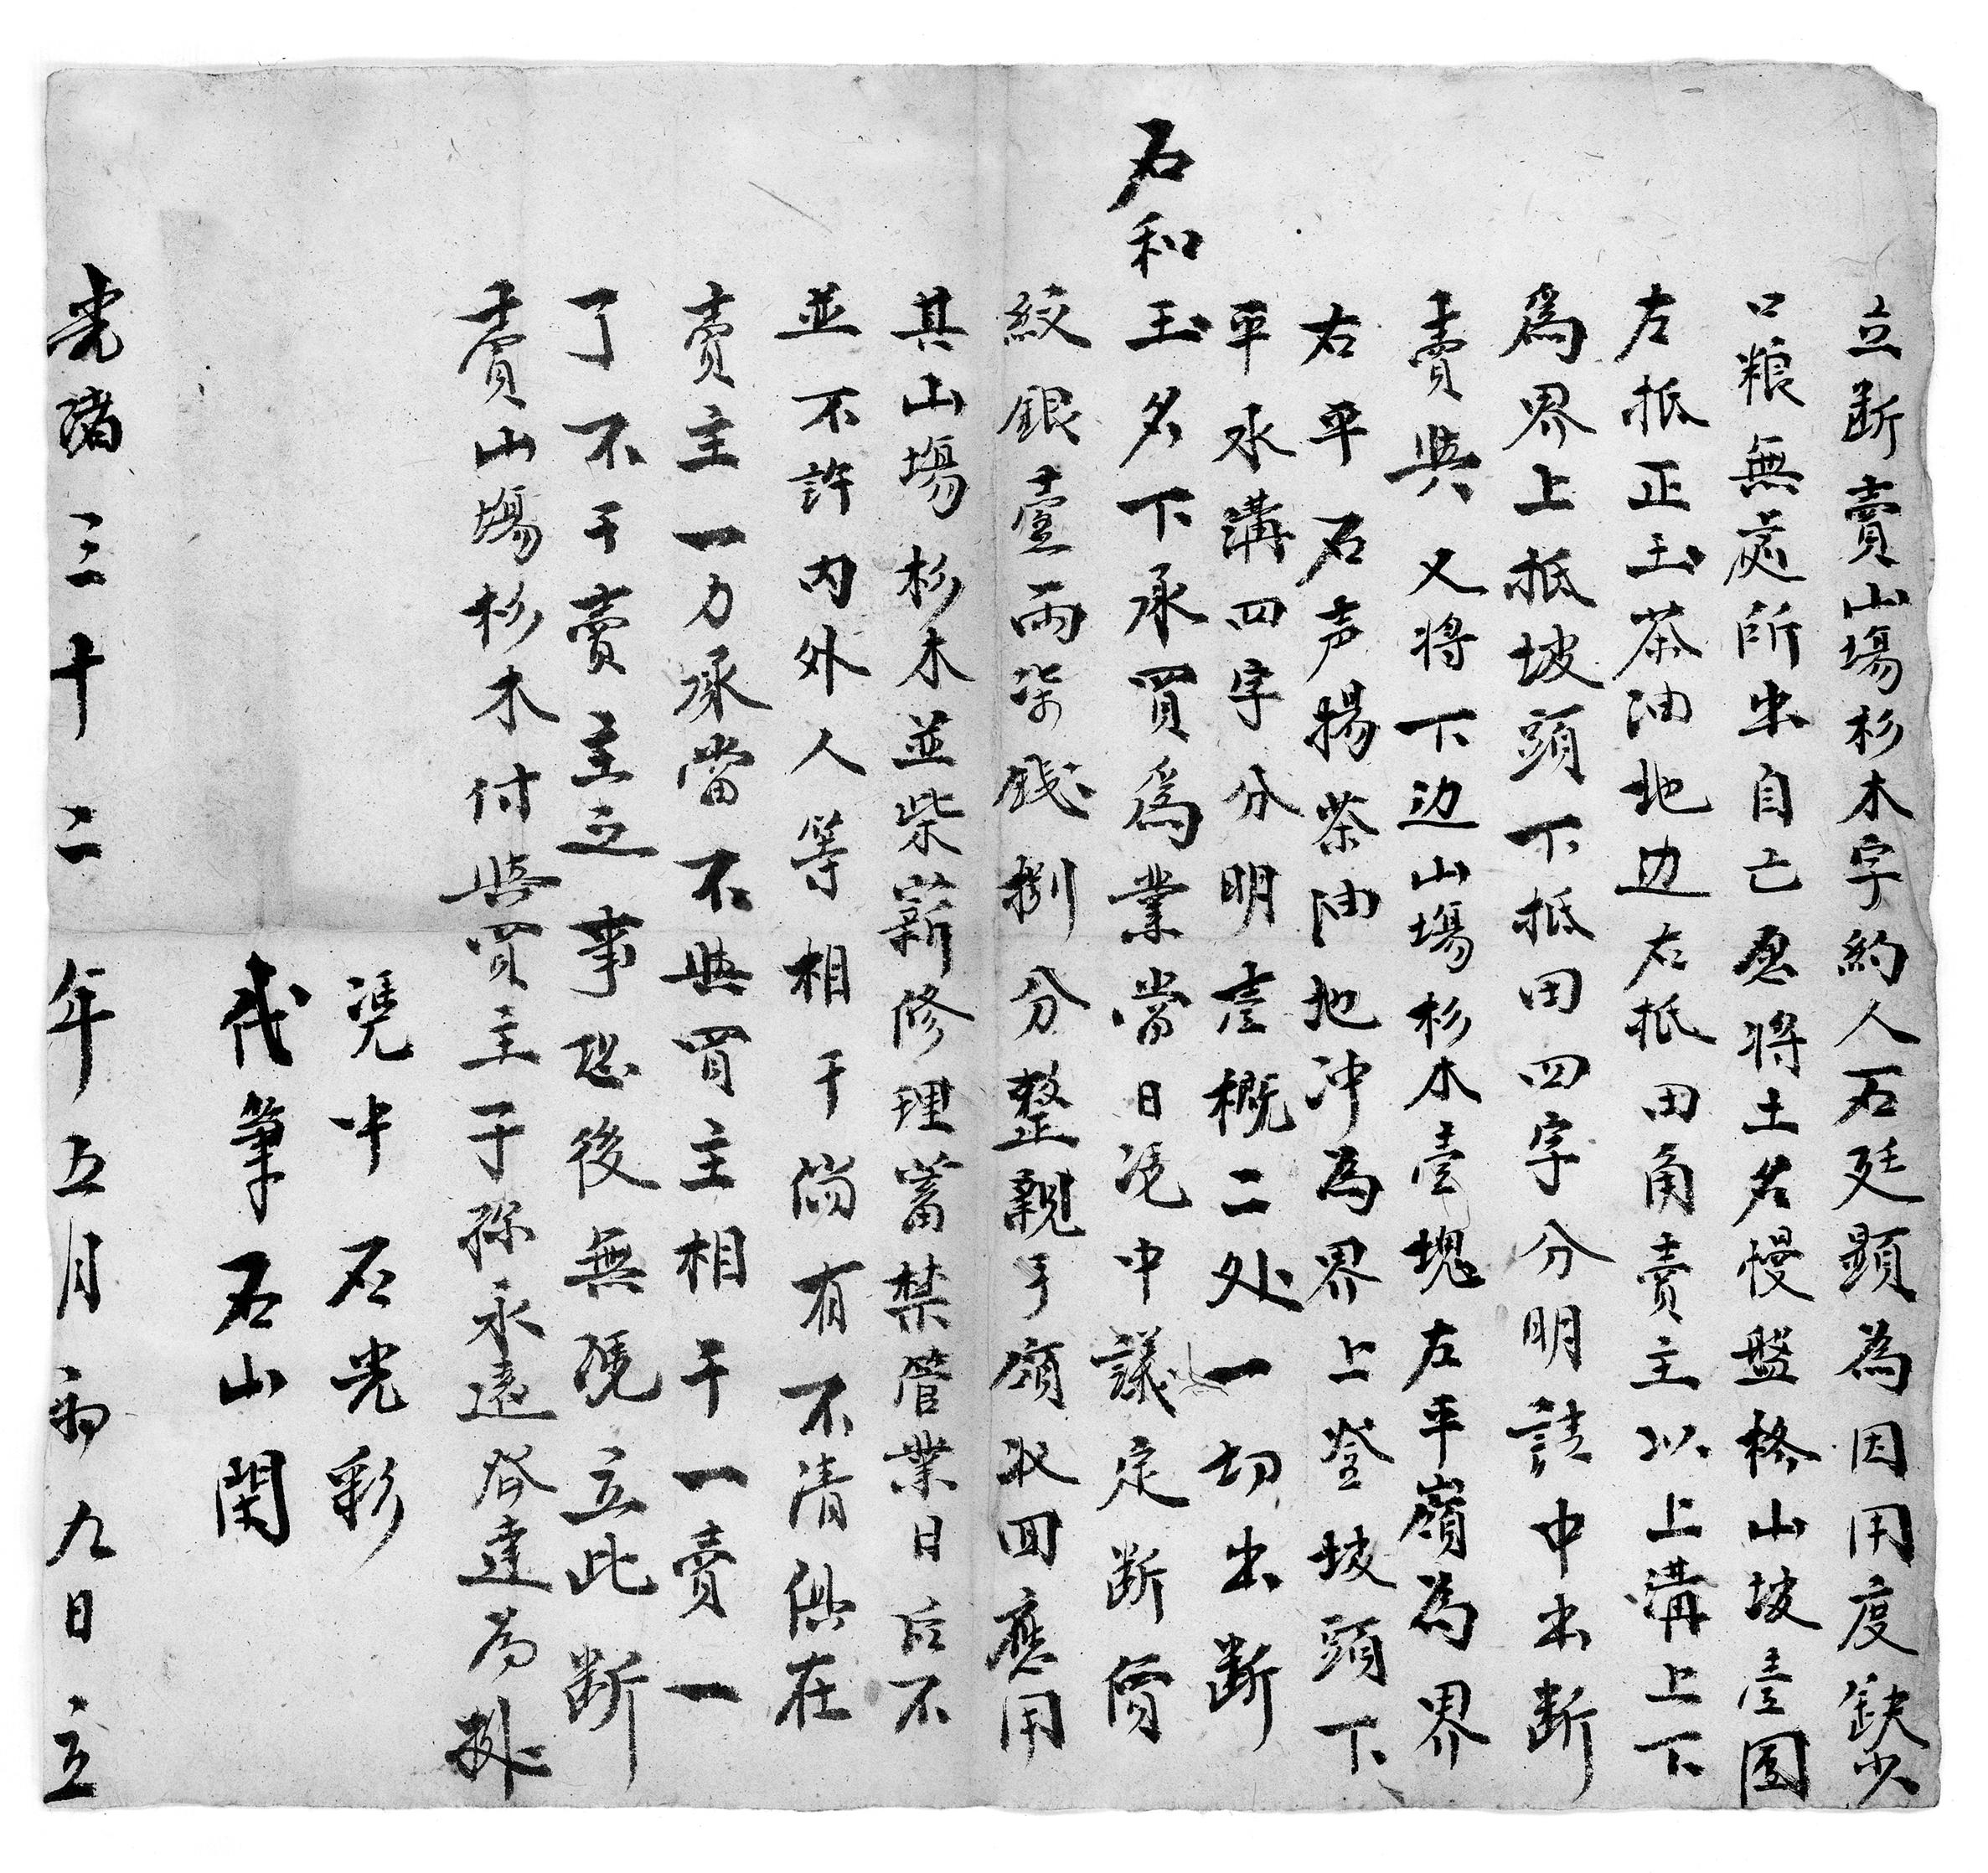 立断賣山塲杉木字約人石廷顕為因用度缺少
口粮無處所出自亡愿將土名慢盤格山坡壹團
左抵正玉茶油地边右抵田角賣主以上溝上下
為界上抵坡頭下抵田四字分明請中出断
賣與又將下边山塲杉木壹塊左平嶺為界
右平石声揚茶油地冲為界上登坡頭下
平水溝四字分明壹概二处一切出断
石和玉名下承買為業當日凭中議定断價
紋銀壹両柒錢捌分整親手領収回應用
其山塲杉木並柴薪修理蓄禁管業日后不
並不許内外人等相干倘有不清俱在
賣主一力承當不與買主相干一賣一
了不干賣主之事恐後無凭立此断
賣山塲杉木付與買主子孫永遠發達為据
凭中石光彩
代筆石山開
光緒三十二年五月初九日立